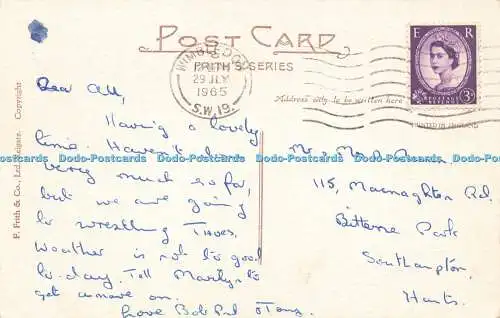 POST CARD
FRITH'S SERIES
WIMBLEDON
29 JLY
1965
S.W.19.
E R
POSTAGE REVENUE
3D
Address only to be written here
PRINTED IN ENGLAND
F. Frith & Co., Ltd., Reigate. Copyright
Dear All,
Having a lovely
time. Haven't
very much so far,
but we are going
to wrestling Thurs.
Weather is not to good
to-day. Tell Marlyn to
get a move on.
Love Bob
Mr & Mrs
115, Macnaghten Rd.
Bitterne Park
Southampton,
Hants.
Dodo-Postcards Dodo-Postcards Dodo-Postcards Dodo-Postcards Dodo-Postcards